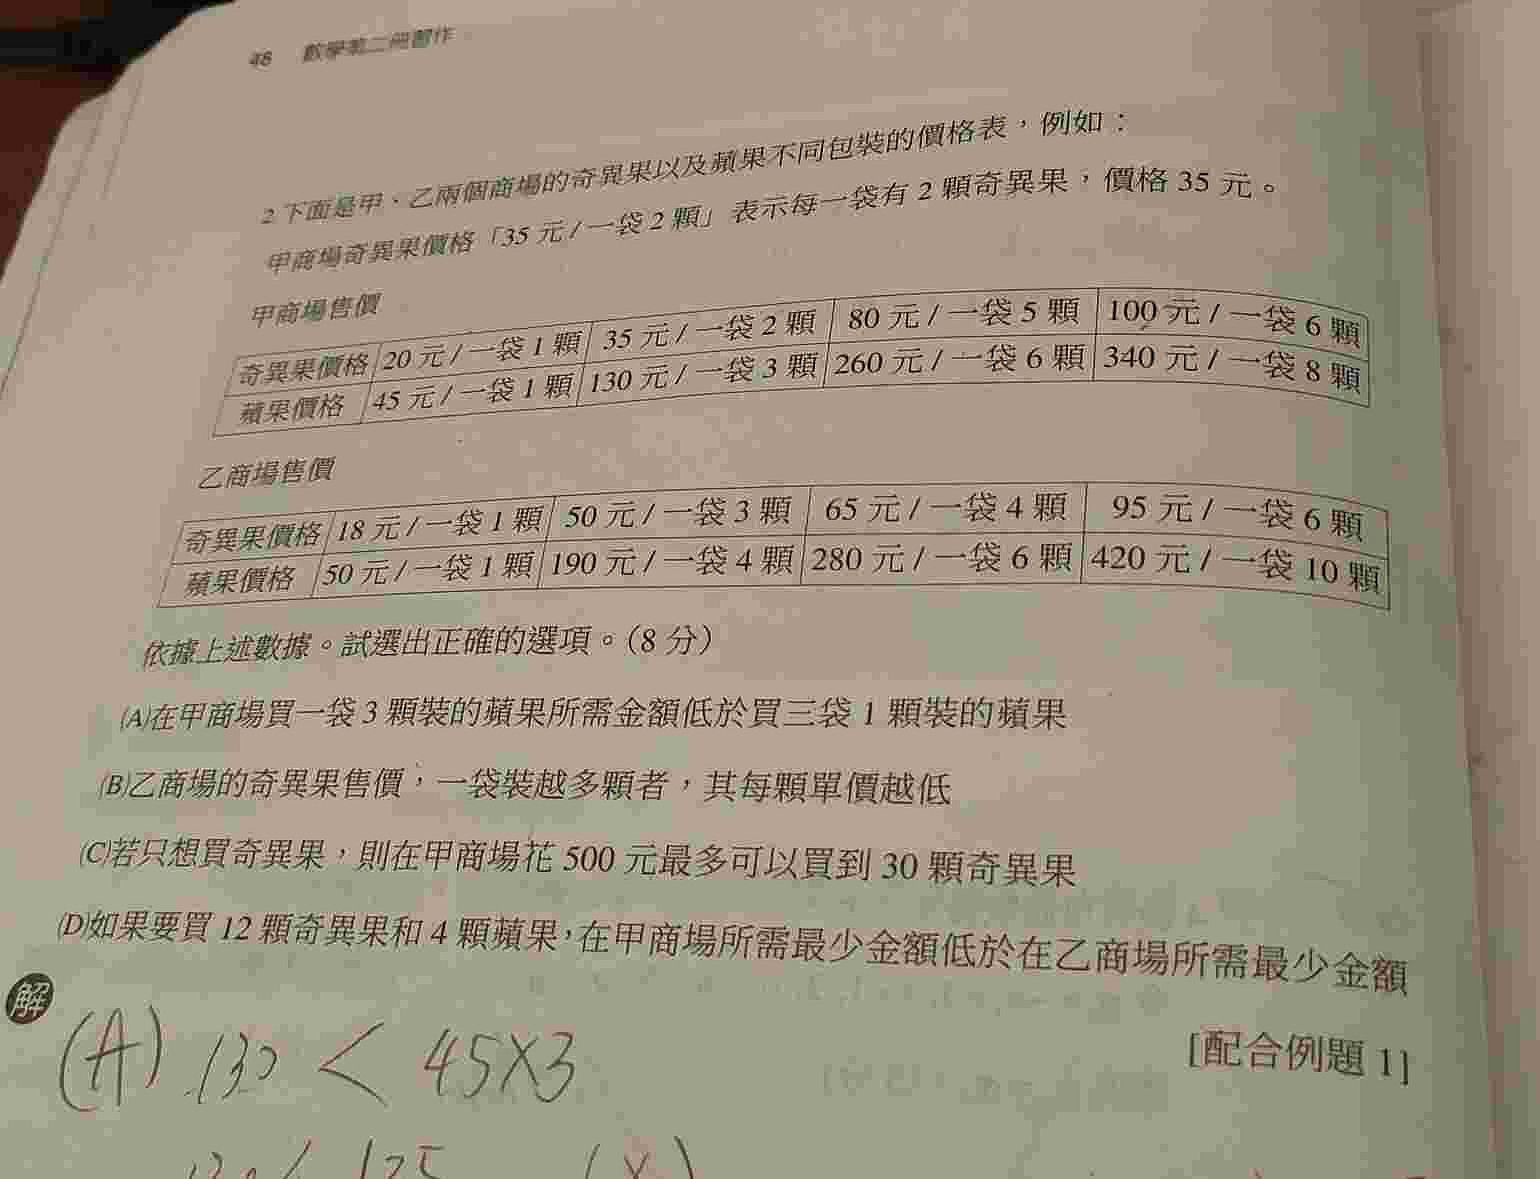 48 數學第二冊習作
2.下面是甲、乙兩個商場的奇異果以及蘋果不同包裝的價格表，例如：
甲商場奇異果價格「35 元 / 一袋 2 顆」表示每一袋有 2 顆奇異果，價格 35 元。
甲商場售價
奇異果價格 20 元 / 一袋 1 顆 35 元 / 一袋 2 顆 80 元 / 一袋 5 顆 100 元 / 一袋 6 顆
蘋果價格 45 元 / 一袋 1 顆 130 元 / 一袋 3 顆 260 元 / 一袋 6 顆 340 元 / 一袋 8 顆
乙商場售價
奇異果價格 18 元 / 一袋 1 顆 50 元 / 一袋 3 顆 65 元 / 一袋 4 顆 95 元 / 一袋 6 顆
蘋果價格 50 元 / 一袋 1 顆 190 元 / 一袋 4 顆 280 元 / 一袋 6 顆 420 元 / 一袋 10 顆
依據上述數據。試選出正確的選項。（8 分）
(A)在甲商場買一袋 3 顆裝的蘋果所需金額低於買三袋 1 顆裝的蘋果
(B)乙商場的奇異果售價，一袋裝越多顆者，其每顆單價越低
(C)若只想買奇異果，則在甲商場花 500 元最多可以買到 30 顆奇異果
(D)如果要買 12 顆奇異果和 4 顆蘋果，在甲商場所需最少金額低於在乙商場所需最少金額
解
[配合例題 1]
(A) 130 < 45×3